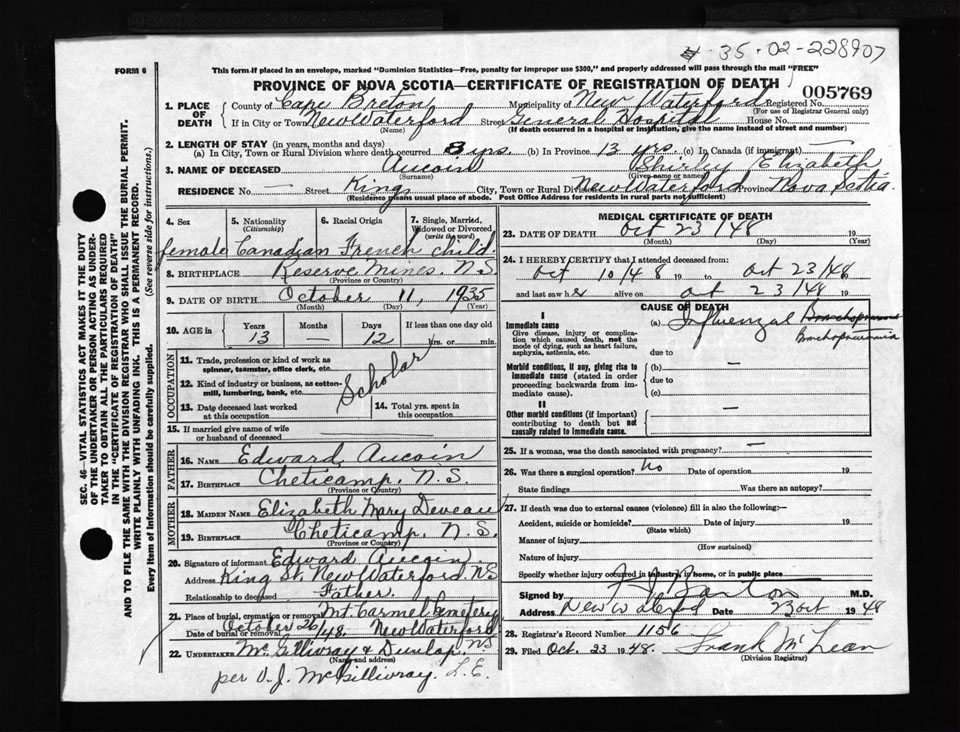 # 35-02-228907
FORM 6
This form if placed in an envelope, marked "Dominion Statistics—Free, penalty for improper use $300," and properly addressed will pass through the mail "FREE"
PROVINCE OF NOVA SCOTIA—CERTIFICATE OF REGISTRATION OF DEATH
005769
1. PLACE OF DEATH
County of Cape Breton Municipality of New Waterford Registered No.
(For use of Registrar General only)
If in City or Town New Waterford Street General Hospital House No.
(Name) (If death occurred in a hospital or institution, give the name instead of street and number)
2. LENGTH OF STAY (in years, months and days)
(a) In City, Town or Rural Division where death occurred 8 yrs. (b) In Province 13 yrs. (c) In Canada (if immigrant) —
3. NAME OF DECEASED Aucoin Shirley Elizabeth
(Surname) (Given name or names)
RESIDENCE No. — Street King City, Town or Rural Division New Waterford Province Nova Scotia.
(Residence means usual place of abode. Post Office Address for residents in rural parts not sufficient)
SEC. 46—VITAL STATISTICS ACT MAKES IT THE DUTY
OF THE UNDERTAKER OR PERSON ACTING AS UNDER-
TAKER TO OBTAIN ALL THE PARTICULARS REQUIRED
IN THE "CERTIFICATE OF REGISTRATION OF DEATH"
AND TO FILE THE SAME WITH THE DIVISION REGISTRAR WHO SHALL ISSUE THE BURIAL PERMIT.
WRITE PLAINLY WITH UNFADING INK. THIS IS A PERMANENT RECORD.
Every item of Information should be carefully supplied. (See reverse side for instructions.)
4. Sex
5. Nationality
(Citizenship)
6. Racial Origin
7. Single, Married, Widowed or Divorced
(write the word)
female Canadian French child.
8. BIRTHPLACE Reserve Mines. N.S.
(Province or Country)
9. DATE OF BIRTH October 11, 1935
(Month) (Day) (Year)
10. AGE in
Years Months Days If less than one day old
13 — 12 hrs. or min.
OCCUPATION
11. Trade, profession or kind of work as
spinner, teamster, office clerk, etc.
12. Kind of industry or business, as cotton-
mill, lumbering, bank, etc.
Scholar
13. Date deceased last worked
at this occupation
14. Total yrs. spent in
this occupation
15. If married give name of wife
or husband of deceased
FATHER
16. NAME Edward Aucoin
17. BIRTHPLACE Cheticamp, N.S.
(Province or Country)
MOTHER
18. MAIDEN NAME Elizabeth Mary Deveau
19. BIRTHPLACE Cheticamp, N.S.
(Province or Country)
20. Signature of informant Edward Aucoin
Address King St. New Waterford. N.S
Relationship to deceased Father.
21. Place of burial, cremation or removal Mt Carmel Cemetery
Date of burial or removal October 26/48. New Waterford
NS
22. UNDERTAKER McGillivray & Dunlap
(Name and address)
per D.J. McGillivray. L.E.
MEDICAL CERTIFICATE OF DEATH
23. DATE OF DEATH Oct 23/48 19
(Month) (Day) (Year)
24. I HEREBY CERTIFY that I attended deceased from:
Oct 10/48 19 to Oct 23/48
and last saw her alive on Oct 23/48 19
CAUSE OF DEATH
I
Immediate cause
Give disease, injury or complica-
tion which caused death, not the
mode of dying, such as heart failure,
asphyxia, asthenia, etc.
(a) Influenzal Bronchopneumonia
Bronchopneumonia
due to
Morbid conditions, if any, giving rise to
immediate cause (stated in order
proceeding backwards from im-
mediate cause).
(b) —
due to
(c)
II
Other morbid conditions (if important)
contributing to death but not
causally related to immediate cause.
—
25. If a woman, was the death associated with pregnancy? —
26. Was there a surgical operation? No Date of operation 19
State findings Was there an autopsy?
27. If death was due to external causes (violence) fill in also the following:—
Accident, suicide or homicide? Date of injury 19
(State which)
Manner of injury
(How sustained)
Nature of injury
Specify whether injury occurred in industry, in home, or in public place
Signed by Barton M.D.
Address New Waterford Date 23 Oct 1948
28. Registrar's Record Number 1156
29. Filed Oct. 23 1948. Frank McLean
(Division Registrar)